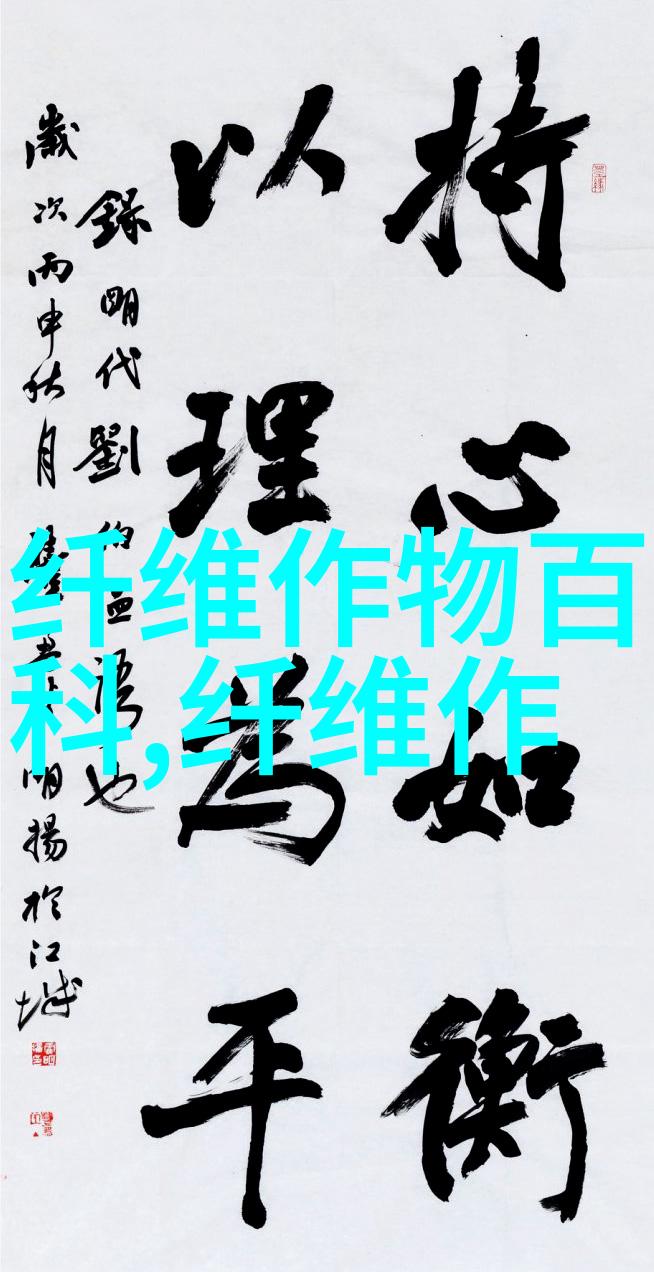 持心如衡
以理为平
録明代劉伯温语也
歲次丙申秋月
明揚於江城
纤维作物百
科,纤维作